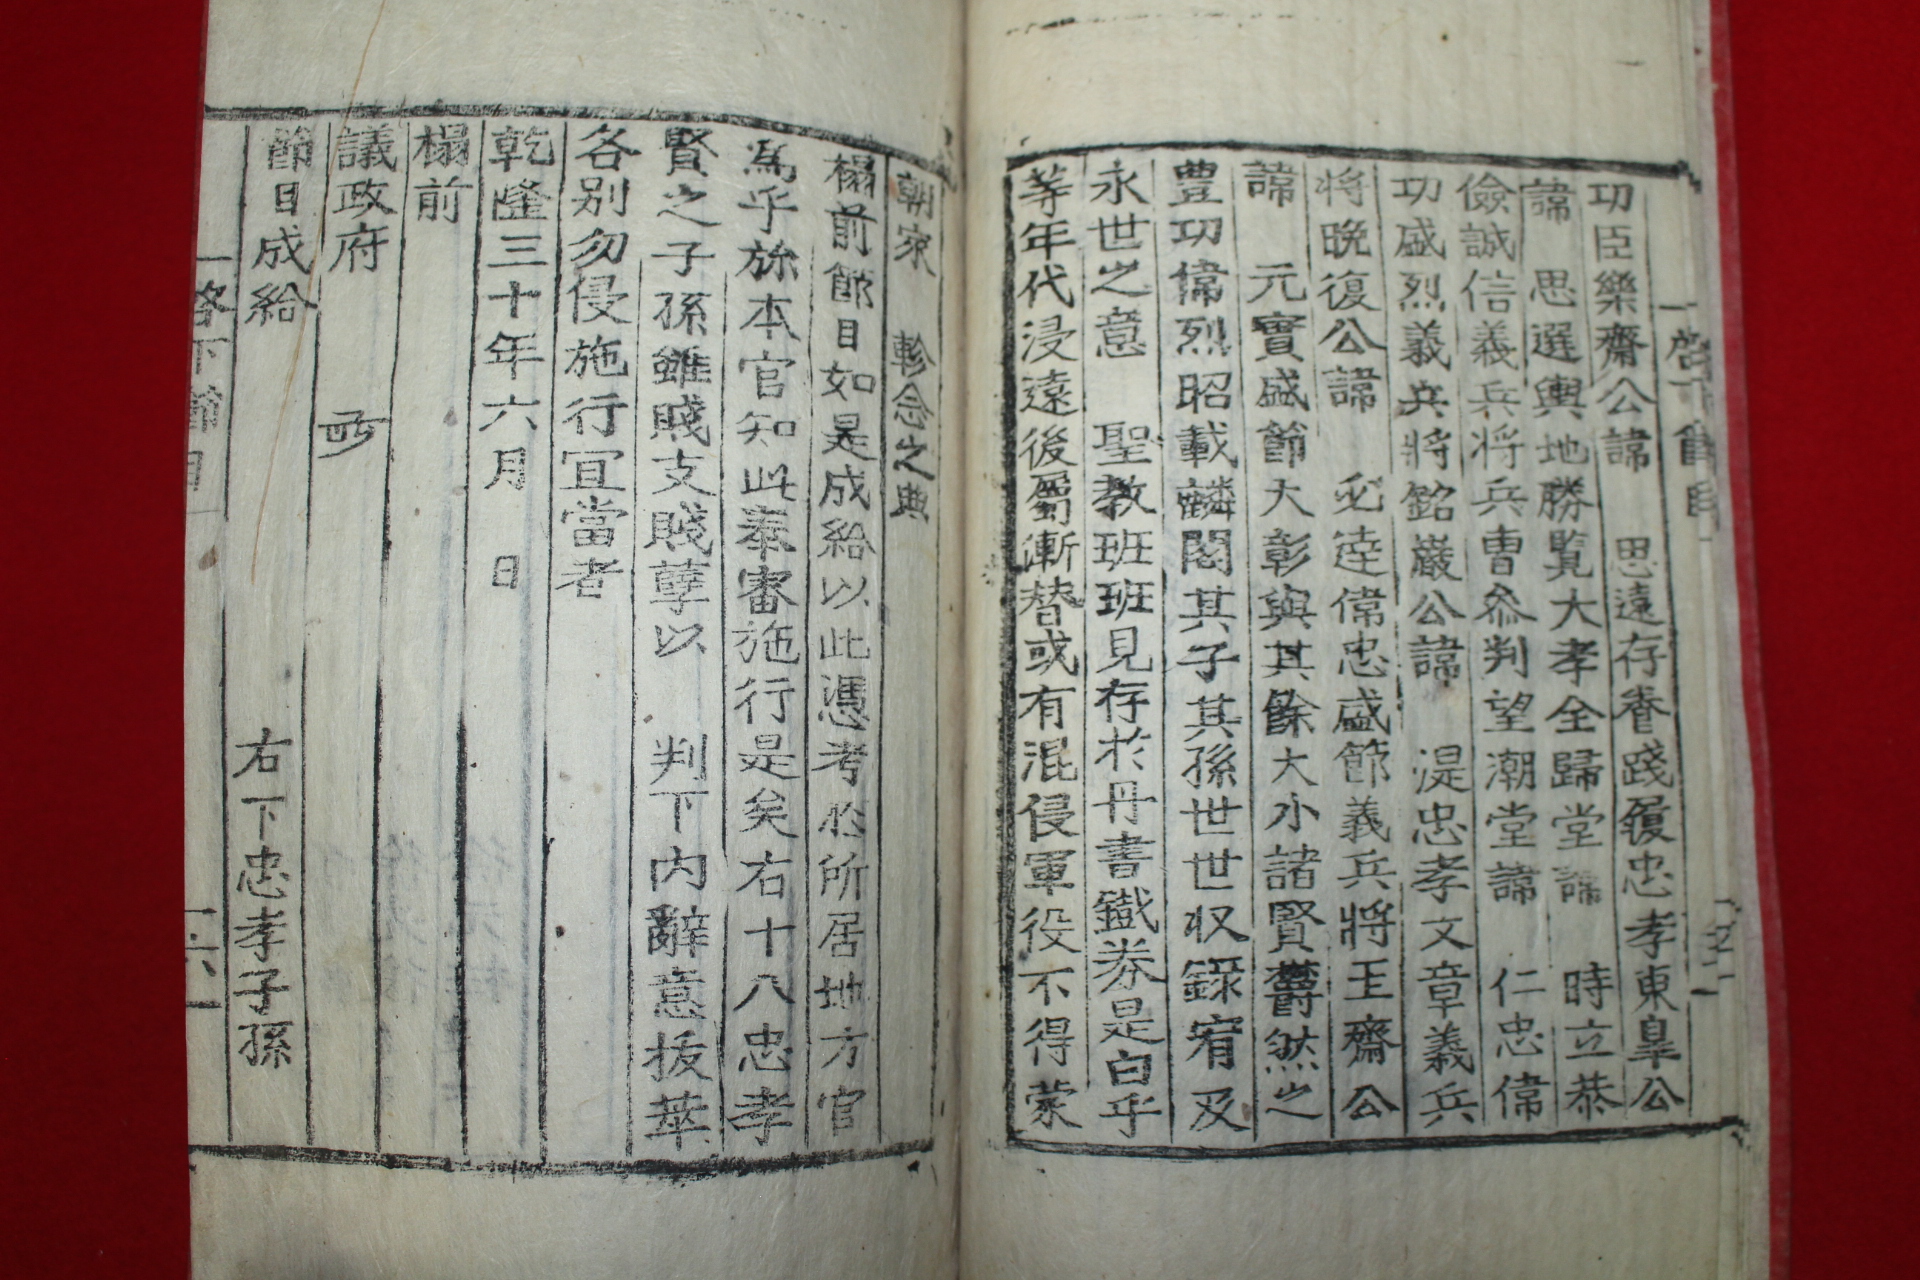 功臣樂齋公諱 思遠存養踐履忠孝東皐公
諱 思選輿地勝覧大孝全歸堂諱 時立恭
儉誠信義兵將兵曹叅判望潮堂諱 仁忠偉
功盛烈義兵將銘巖公諱 湜忠孝文章義兵
将晩復公諱 必達偉忠盛節義兵將王齋公
諱 元實盛節大彰與其餘大小諸賢欝然之
豊功偉烈昭載麟閣其子其孫世世収録宥及
永世之意 聖教班班見存於丹書鐵券是白乎
等年代浸遠後屬漸替或有混侵軍役不得蒙
啓下節目
朝家 軫念之典
榻前節目如是成給以此憑考於所居地方官
爲乎旀本官知此泰審施行是矣右十八忠孝
賢之子孫雖賤支賤孽以 判下内辭意拔萃
各別勿侵施行冝當者
乾隆三十年六月 日
榻前
議政府
節目成給 右下忠孝子孫
啓下節目 六